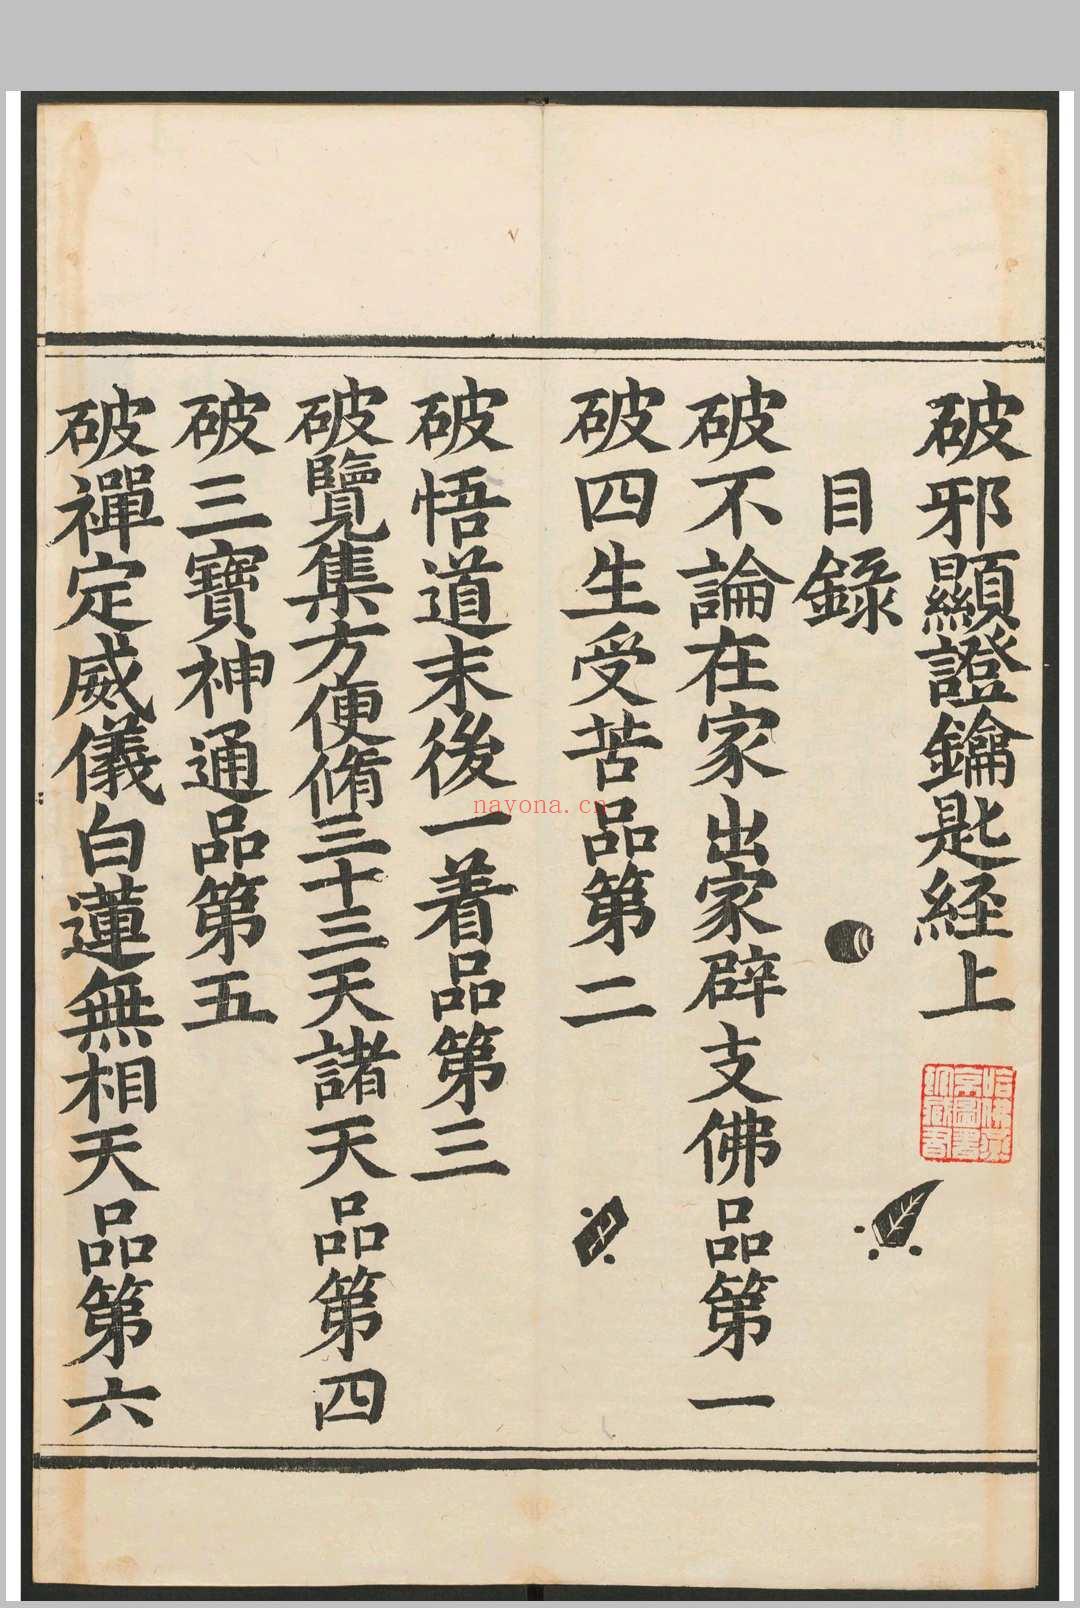 破邪顯證鑰匙経上
目錄
破不論在家出家辟支佛品第一
破四生受苦品第二
破悟道末後一着品第三
破覽集方便脩三十三天諸天品第四
破三寶神通品第五
破禪定威儀白蓮無相天品第六
nayona.cn